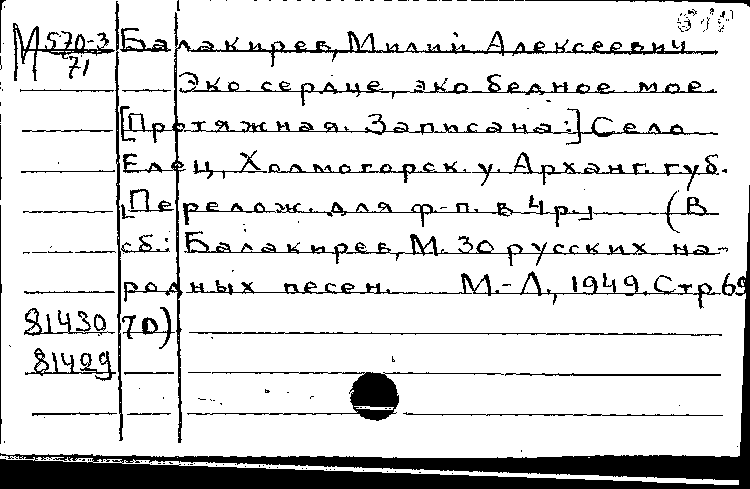 М 570-3 Балакирев, Милий Алексеевич
71 Эко сердце, эко бедное мое.
[Протяжная. Записана:] Село
Елец, Холмогорск. у. Арханг. губ.
[Перелож. для ф-п. в 4 р.] (В
сб.: Балакирев, М. 30 русских на-
родных песен. М.-Л., 1949. Стр 69
81430 70)
81429